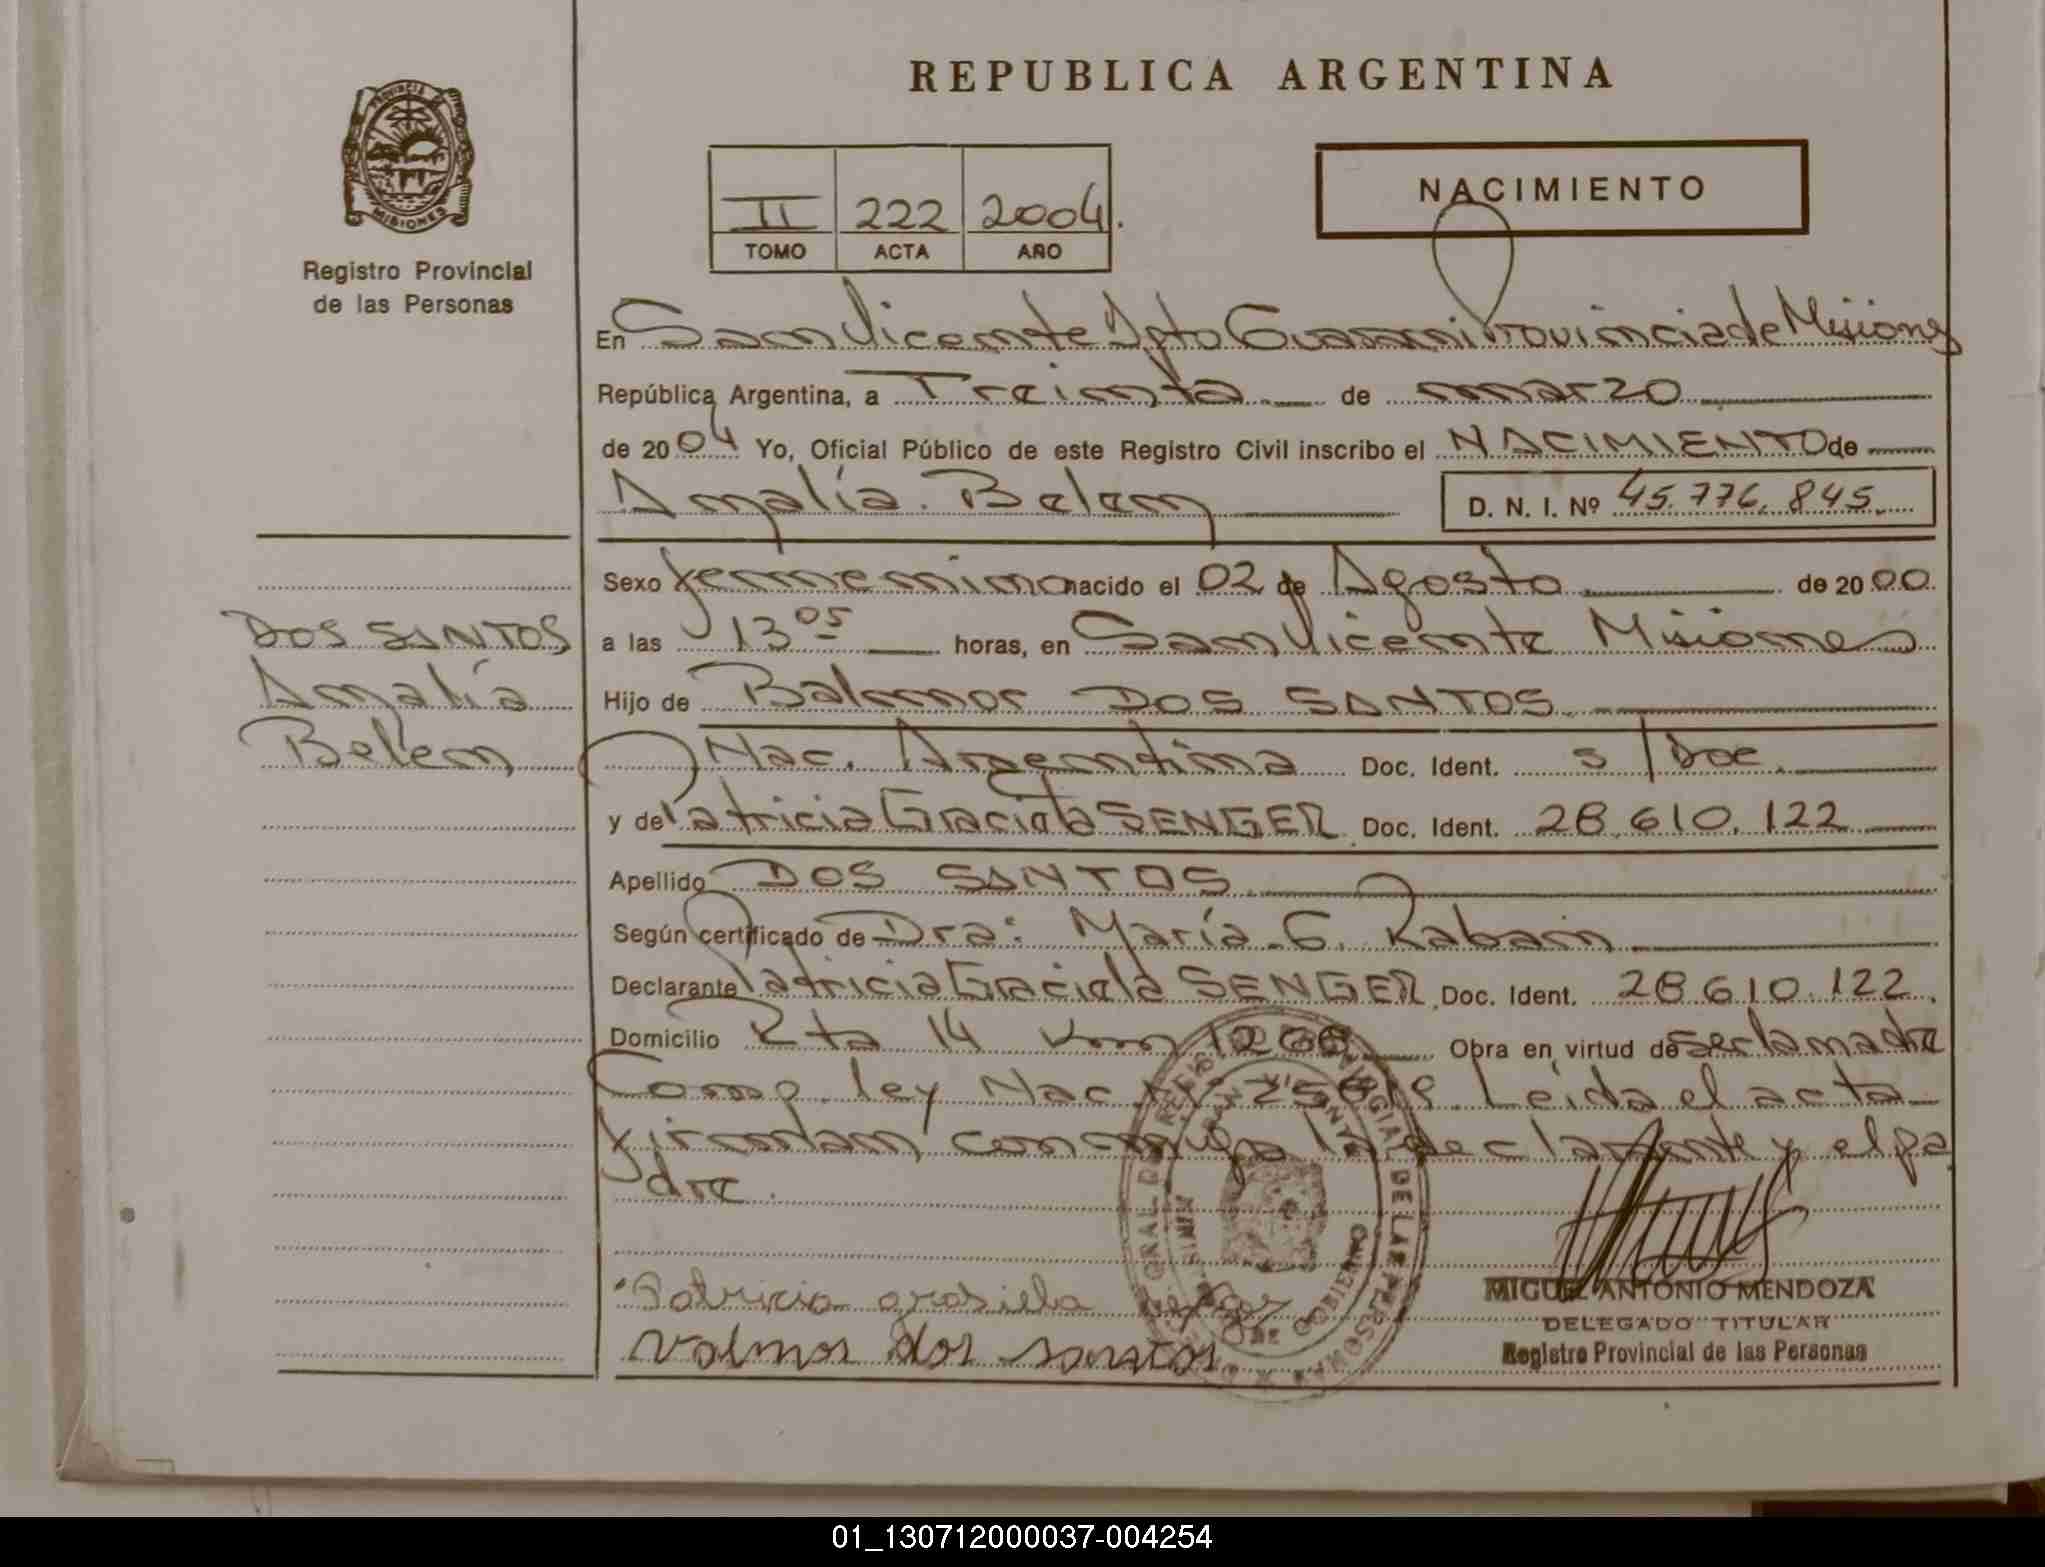 REPUBLICA ARGENTINA
PROVINCIA DE
MISIONES
Registro Provincial
de las Personas
II 222 2004.
TOMO ACTA AÑO
NACIMIENTO
En San Vicente Dpto Guarani Provincia de Misiones
República Argentina, a Treinta de marzo
de 2004 Yo, Oficial Público de este Registro Civil inscribo el NACIMIENTO de
Amalía Belem D. N. I. Nº 45.776.845.
Sexo femenino nacido el 02 de Agosto de 2000.
a las 13 05 horas, en San Vicente Misiones
Hijo de Balmor DOS SANTOS
Nac. Argentina Doc. Ident. s/Doc.
y de Patricia Graciela SENGER Doc. Ident. 28.610.122
Apellido DOS SANTOS
Según certificado de Dra: María G. Rabain
Declarante Patricia Graciela SENGER Doc. Ident. 28.610.122.
Domicilio Rta 14 Km Obra en virtud de ser la madre
Comp. ley Nac. Leída el acta
firman conmigo la declarante y el pa
dre.
DOS SANTOS
Amalía
Belem
Patricia grasiela
valmor dos santos
MIGUEL ANTONIO MENDOZA
DELEGADO TITULAR
Registro Provincial de las Personas
01_130712000037-004254